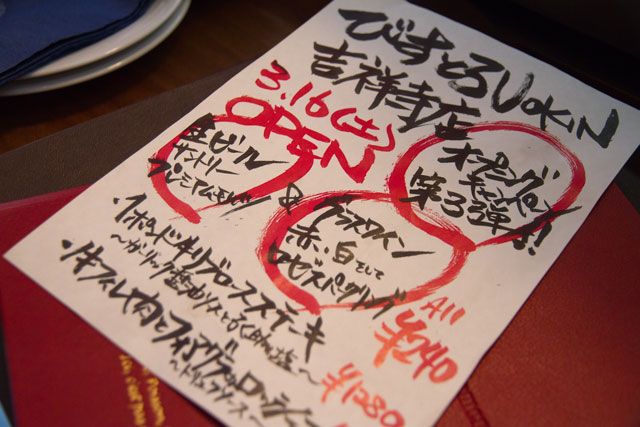 びすとろUOKiN
吉祥寺店
3.16(土)
OPEN
オープニング
第3弾!!
生ビール
サントリー
プレミアムモルツ
&
グラスワイン
赤、白そして
ロゼスパークリング
All
¥240
・1ポンド牛リブロースステーキ
¥1280
・牛フィレ肉とフォアグラのロッシーニ
〜トリュフソース〜